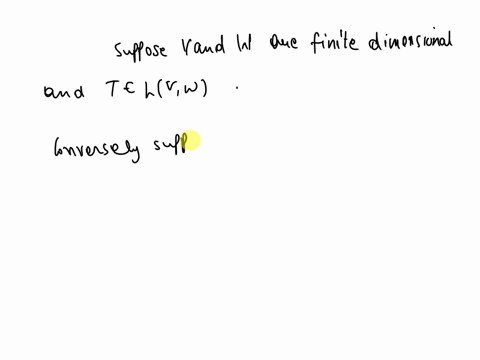 Suppose V and W are finite dimensional
and T ∈ L(V,W) .
Conversely supp